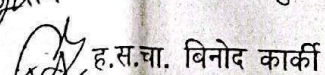 ह.स.चा. बिनोद कार्की